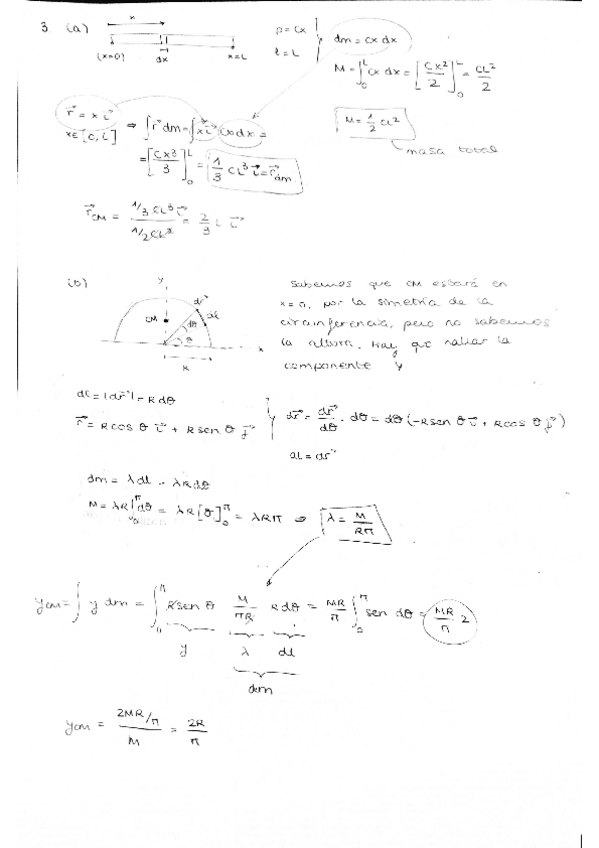 3. (a) x ρ = Cx
(x=0) dx x=L l = L
dm = Cx dx
M = ∫₀ᴸ Cx dx = [Cx²/2]₀ᴸ = CL²/2
M = 1/2 CL²
masa total
r⃗ = x i⃗ ⇒ ∫ r⃗ dm = ∫ x i⃗ Cx dx =
x ∈ [0, L]
= [Cx³/3]₀ᴸ = 1/3 CL³ i⃗ = r⃗dm
r⃗CM = 1/3 CL³ i⃗ / 1/2 CL² = 2/3 L i⃗
(b) y
dr⃗
dl
CM dθ
θ
R x
Sabemos que CM estará en
x = 0, por la simetría de la
circunferencia, pero no sabemos
la altura. Hay que hallar la
componente y
dl = |dr⃗| = R dθ
r⃗ = R cos θ i⃗ + R sen θ j⃗
dr⃗ = dr⃗/dθ · dθ = dθ (-R sen θ i⃗ + R cos θ j⃗)
dl = dr⃗
dm = λ dl = λ R dθ
M = λR ∫₀^π dθ = λR [θ]₀^π = λRπ ⇒ λ = M/Rπ
yCM = ∫ y dm = ∫₀^π R sen θ M/πR R dθ = MR/π ∫₀^π sen dθ = MR/π 2
y λ dl
dm
yCM = 2MR/π / M = 2R/π